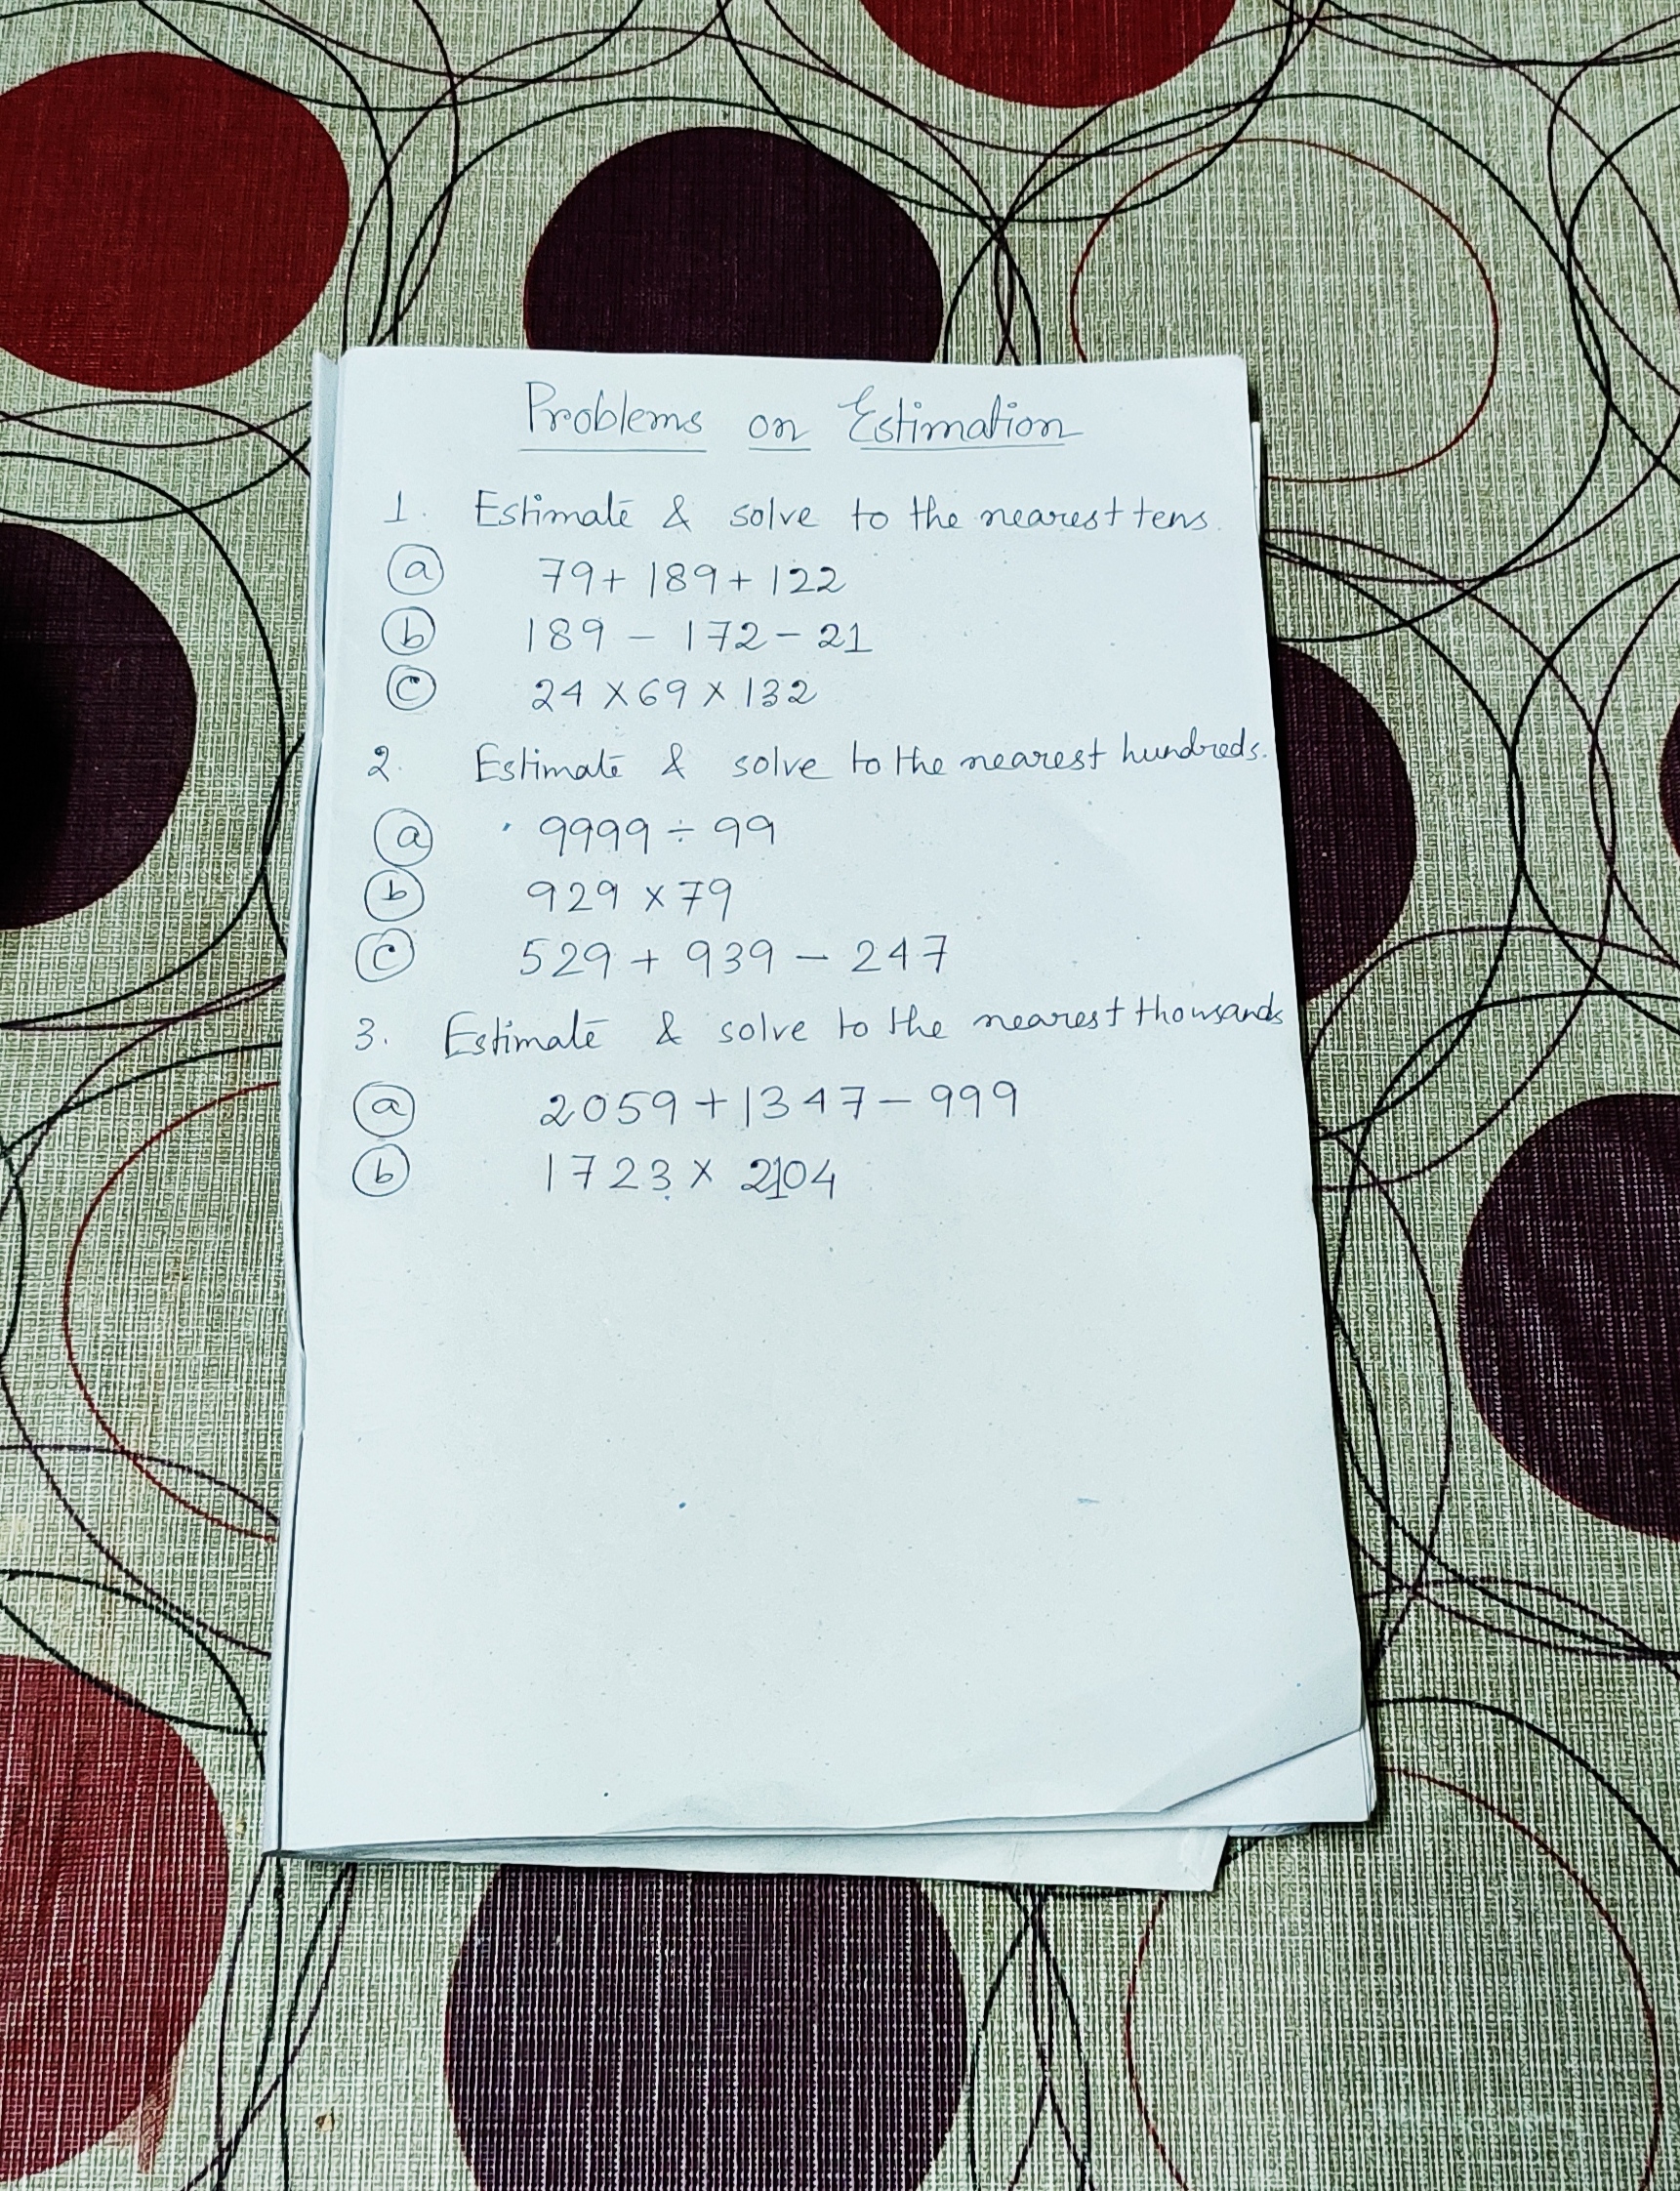 Problems on Estimation
1. Estimate & solve to the nearest tens.
(a) 79 + 189 + 122
(b) 189 - 172 - 21
(c) 24 x 69 x 132
2. Estimate & solve to the nearest hundreds.
(a) 9999 ÷ 99
(b) 929 x 79
(c) 529 + 939 - 247
3. Estimate & solve to the nearest thousands
(a) 2059 + 1347 - 999
(b) 1723 x 2104